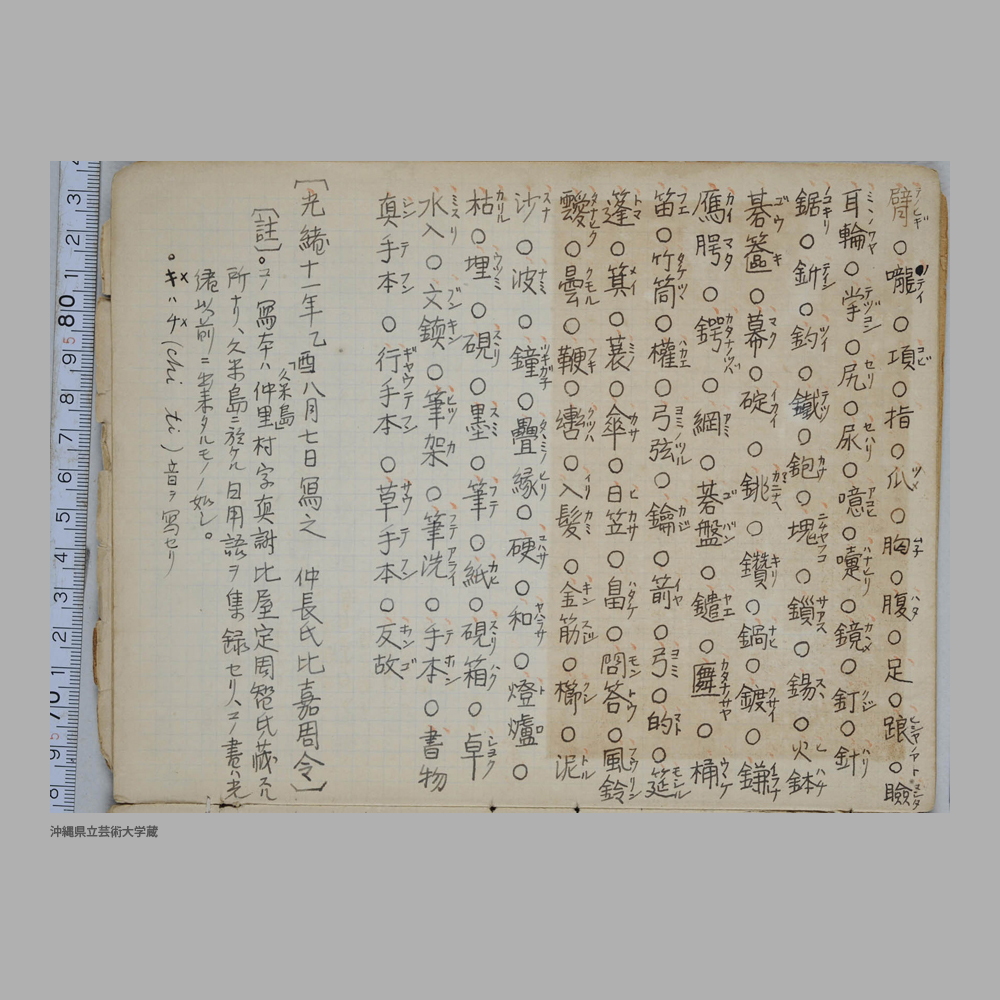 臂○嚨○項○指○爪○胸○腹○足○踉○瞼
耳輪○掌○尻○尿○噫○嚏○鏡○釘○針
鋸○釿○釣○鐵○鉋○塊○鎖○錫○火鉢
碁簺○幕○碇○銚○鑽○鍋○鍍○鎌
雁腭○鍔○網○碁盤○鑓○匣○桶
笛○竹筒○權○弓弦○鑰○箭○弓○的○筵
篷○箕○蓑○傘○日笠○畠○問答○風鈴
靉○曇○鞭○轡○入髮○金筋○櫛○泥
沙○波○鐘○疊緣○硬○和○燈爐○
枯○埋○硯○墨○筆○紙○硯箱○卓
水入○文鎮○筆架○筆洗○手本○書物
真手本○行手本○草手本○反故
[光緒十一年乙酉八月七日寫之 仲長氏比嘉周令]
[註]。コノ寫本ハ「久米島」仲里村字真謝比屋定周智氏藏スル
所ナリ、久米島ニ於ケル日用語ヲ集録セリ、コノ書ハ光
緒以前ニ出来タルモノノ如シ。
。キハチ(chi ti)音ヲ寫セリ
沖縄県立芸術大学蔵